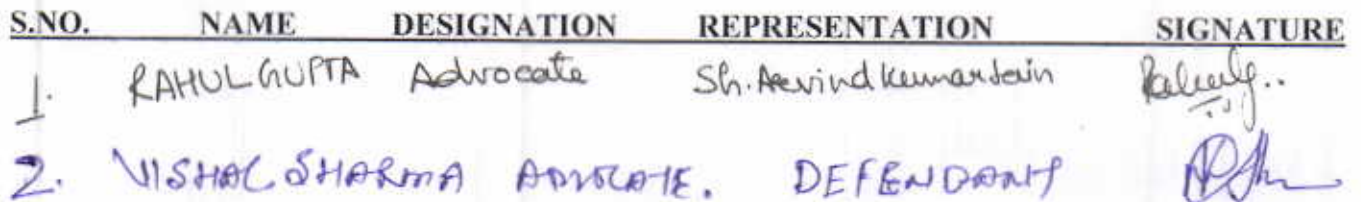 S.NO. NAME DESIGNATION REPRESENTATION SIGNATURE
1. RAHUL GUPTA Advocate Sh. Arvind kumar Jain
2. VISHAL SHARMA ADVOCATE. DEFENDANT